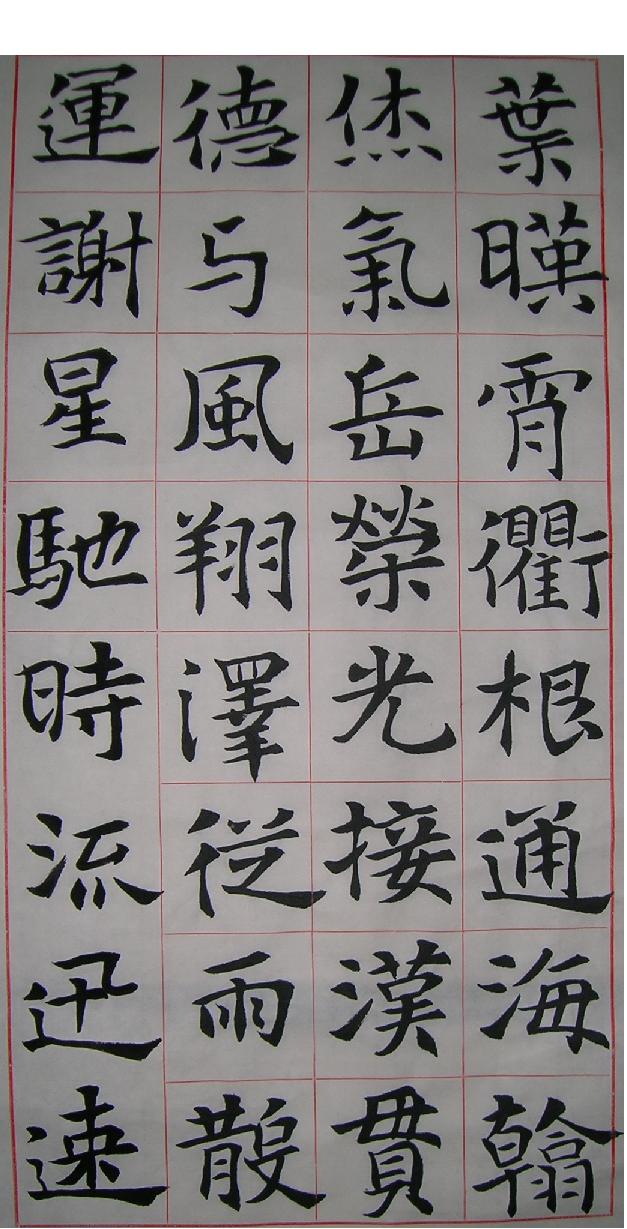 葉暎霄衢根通海翰
烋氣岳榮光接漢貫
德与風翔澤從雨散
運謝星馳時流迅速